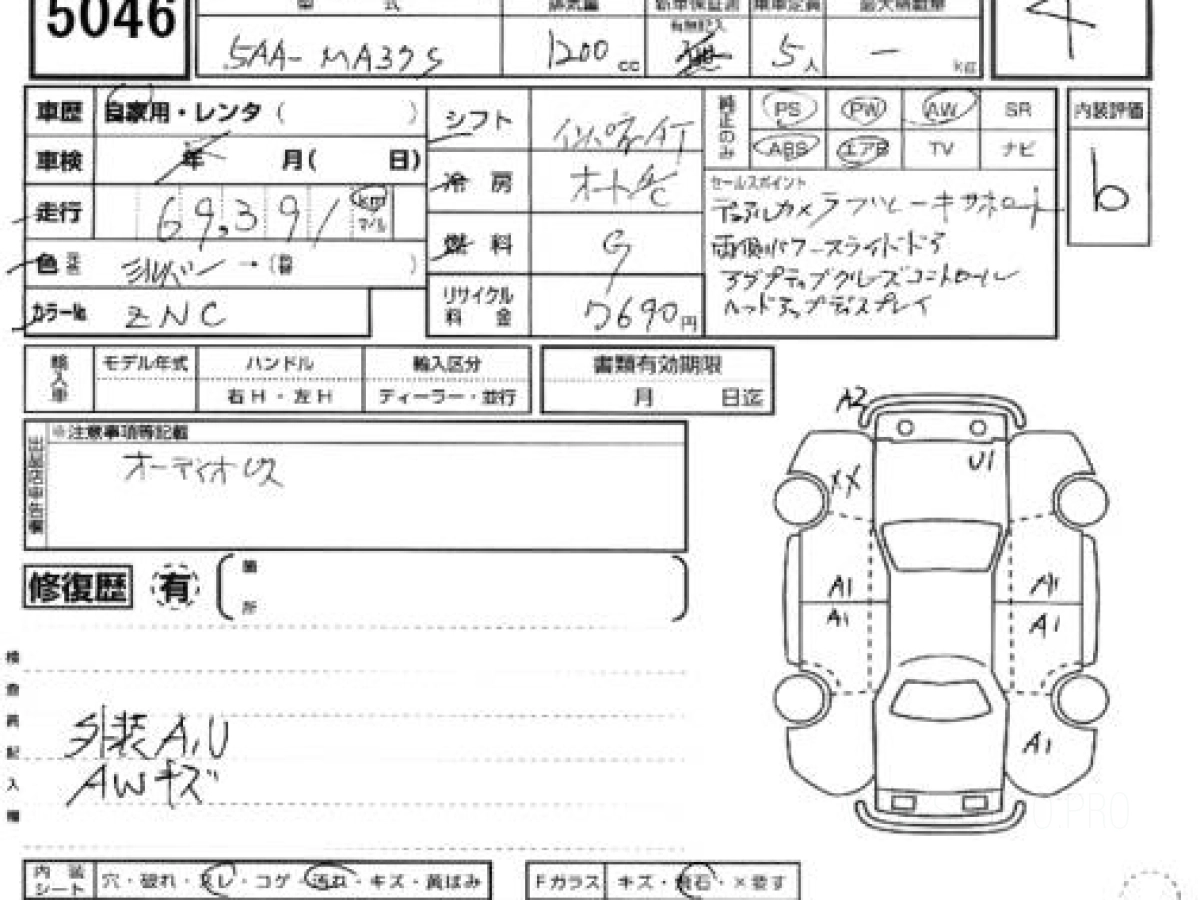 5046
型 式 排気量 新車保証書 乗車定員 最大積載量
有無記入
5AA-MA37S 1200cc 5人 ー kg
車歴 自家用・レンタ( )
シフト インパネAT
純正のみ PS PW AW SR
ABS エアB TV ナビ
内装評価
b
車検 年 月( 日)
冷房 オートAC
走行 69,391 km マイル
燃料 G
色 シルバー→( )
カラー№ ZNC
リサイクル料金 7690円
セールスポイント
デュアルカメラブレーキサポート
両側パワースライドドア
アダプティブクルーズコントロール
ヘッドアップディスプレイ
輸入車 モデル年式 ハンドル 輸入区分
右H・左H ディーラー・並行
書類有効期限
月 日迄
出品店申告欄
※注意事項等記載
オーディオレス
修復歴 有 箇所
検査員記入欄
外装A,U
AWキズ
A2
U1
XX
A1 A1
A1 A1
A1
O.PRO
内装シート 穴・破れ・スレ・コゲ・汚れ・キズ・黄ばみ
Fガラス キズ・飛石・×要す